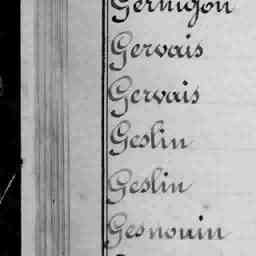 Gernigon
Gervais
Gervais
Geslin
Geslin
Gesnouin